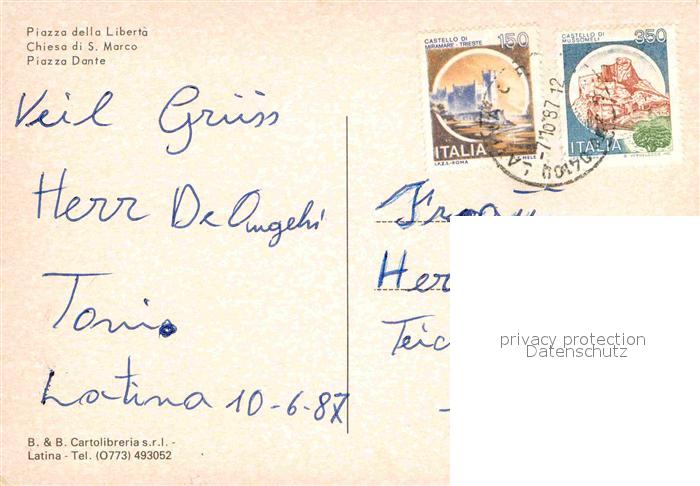 Piazza della Libertà
Chiesa di S. Marco
Piazza Dante
Veil Grüss
Herr De Angelis
Tonio
Latina 10-6-87
B. & B. Cartolibreria s.r.l. -
Latina - Tel. (0773) 493052
CASTELLO DI
MIRAMARE - TRIESTE 150
ITALIA
I.P.Z.S. - ROMA
CASTELLO DI
MUSSOMELI 350
ITALIA
Her
Teic
privacy protection
Datenschutz